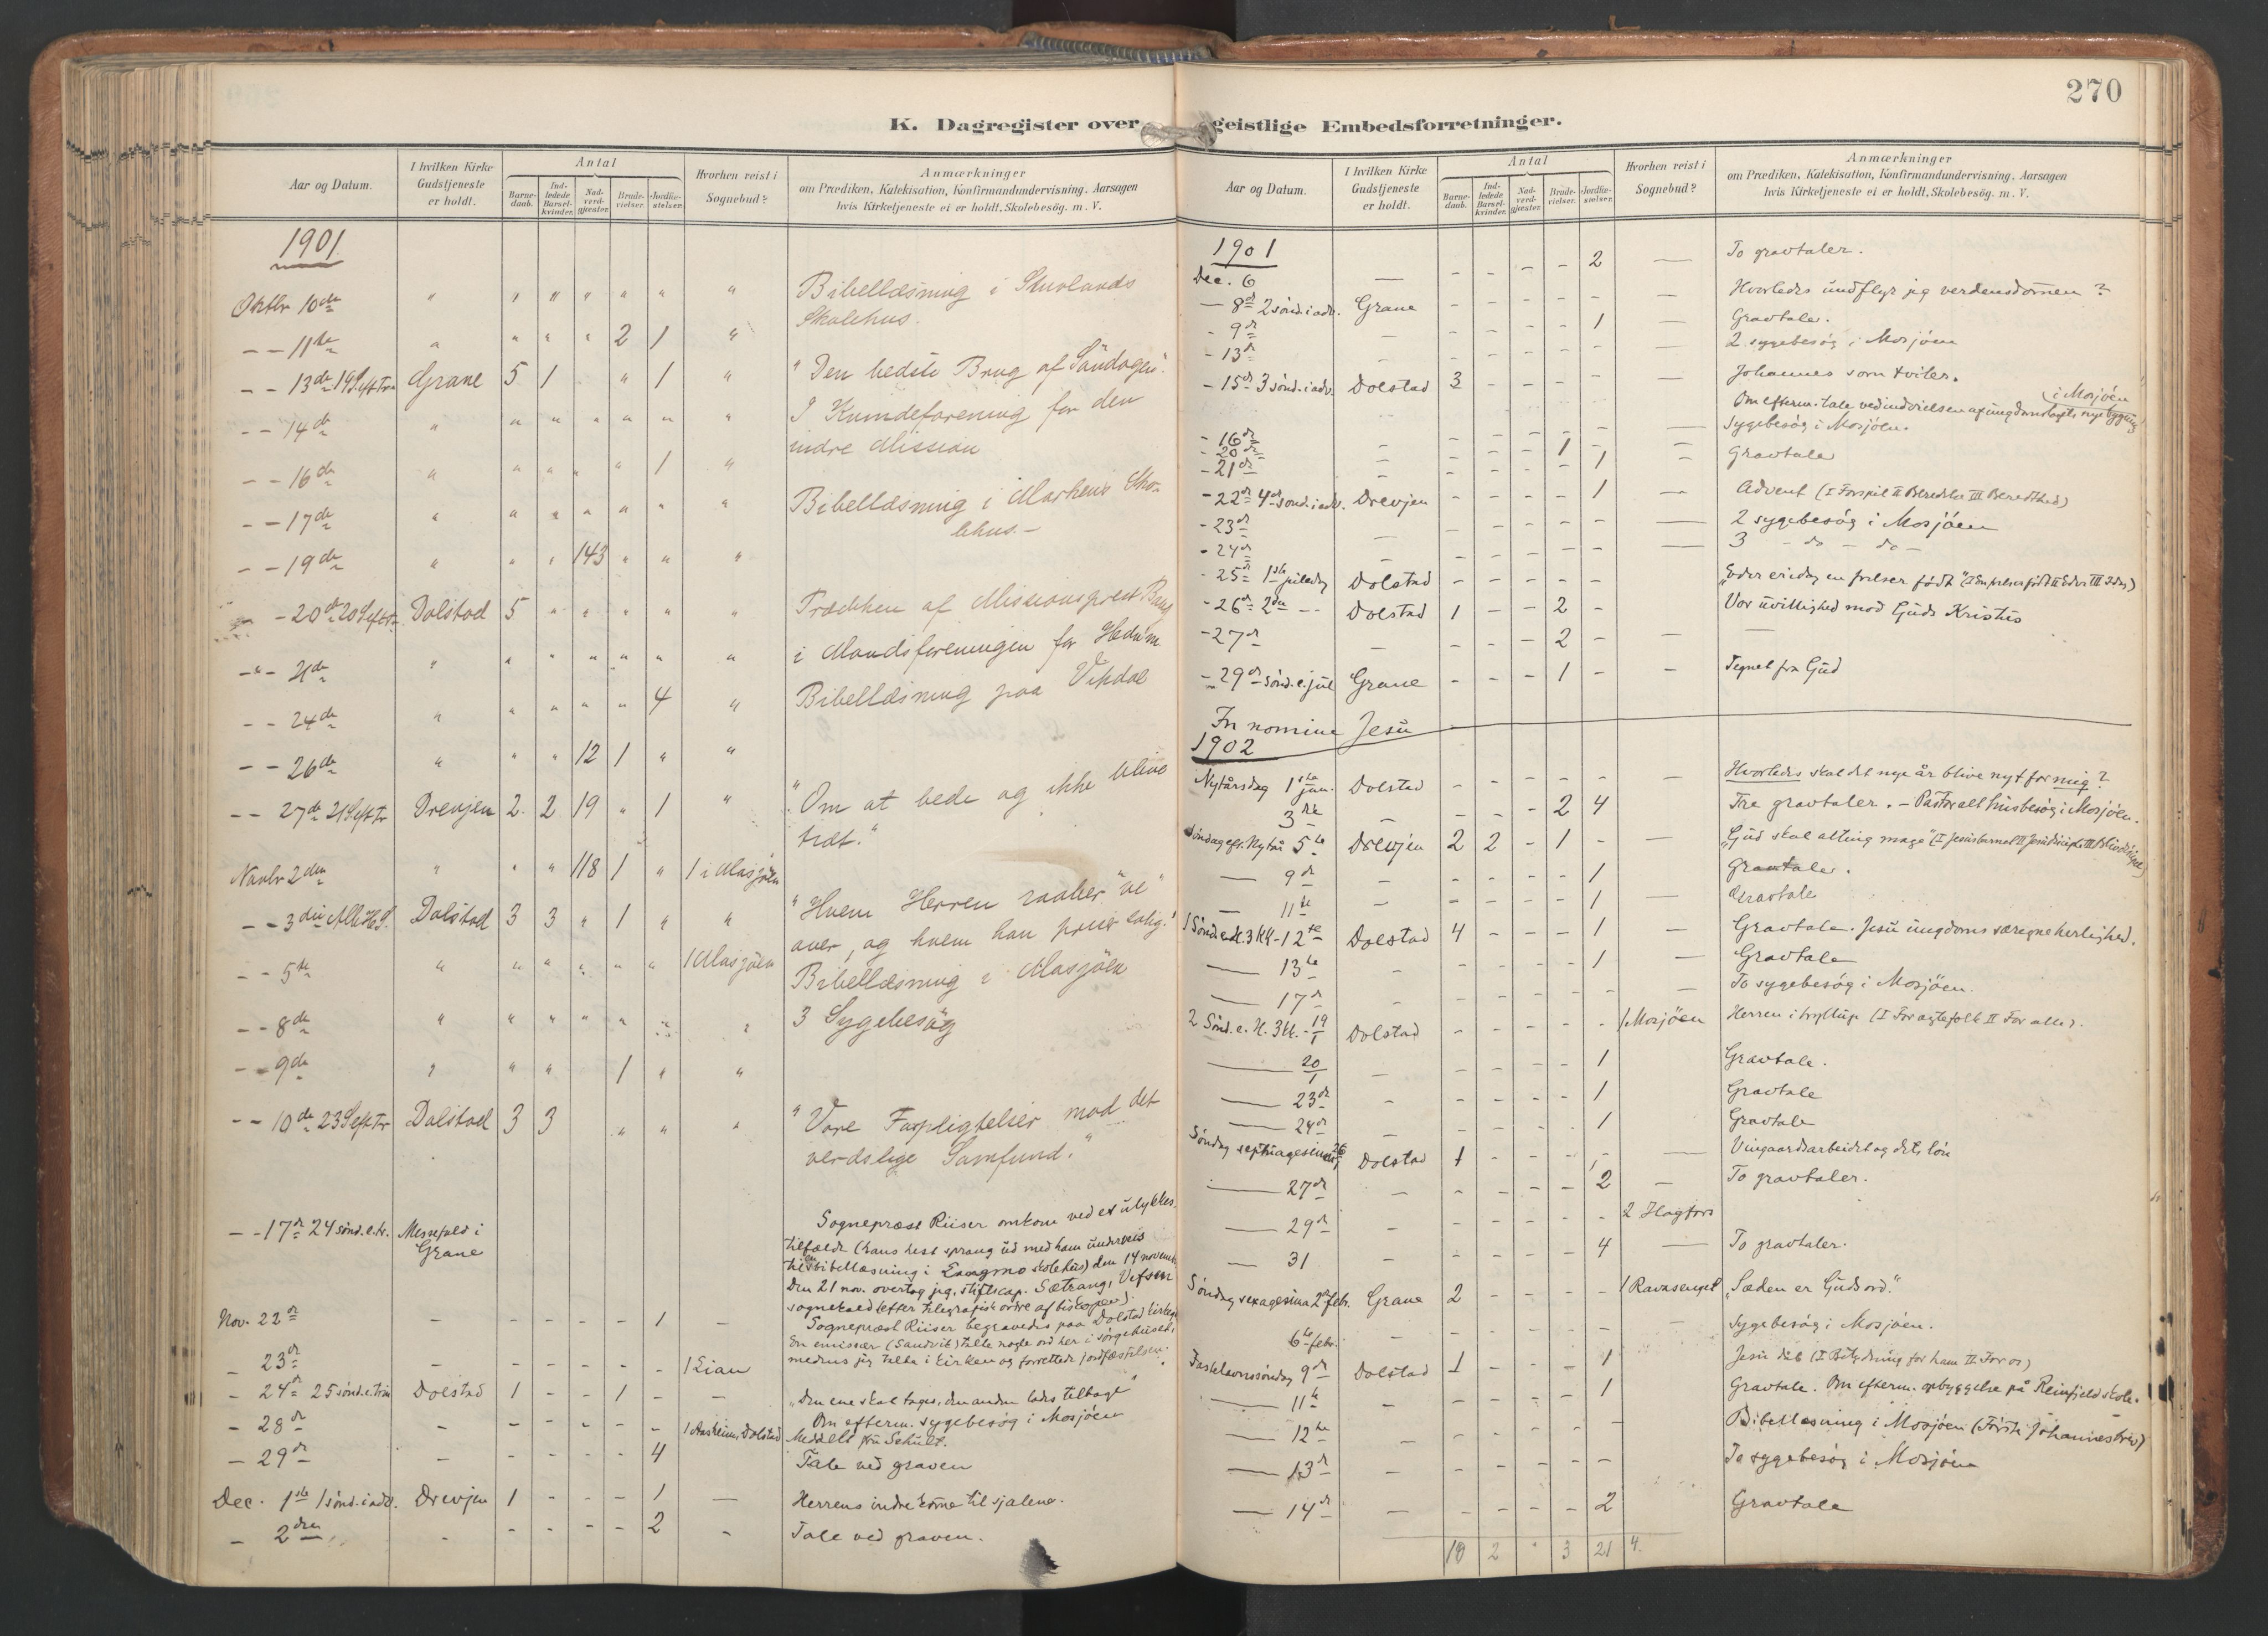 270
K. Dagregister over geistlige Embedsforretninger.
Aar og Datum. I hvilken Kirke Gudstjeneste er holdt. Antal Barne-daab. Ind-ledede Barsel-kvinder. Nad-verd-gjæster. Brude-vielser. Jordfæ-stelser. Hvorhen reist i Sognebud? Anmærkninger om Prædiken, Katekisation, Konfirmandundervisning, Aarsagen hvis Kirketjeneste ei er holdt, Skolebesøg. m. V.
1901
Oktbr 10de " " " " " " " Bibellæsning i
Skolehus.
- - 11te " " " " 2 1 "
- - 13de 19 S eft Tr. Grane 5 1 " 1 " "Den bedste Brug af Søndagen".
- - 14de " " " " " " " I Kvindeforening for den
indre Mission
- - 16de " " " " " 1 "
- - 17de " " " " " " " Bibellæsning i Markens Sko-
lehus. -
- - 19de " " " 143 " " "
- 20de 20 S eft Tr. Dolstad 5 " " " " " Prædiken af Missionsprest
- - 21de " " " " " " " i Mandsforeningen for Hedn. m
- - 24de " " " " " 4 " Bibellæsning paa Vikdal
- - 26de " " " 12 1 " "
- - 27de 21 S eft Tr Drevjen 2 2 19 " 1 " "Om at bede og ikke blive
træt."
Novbr 2den " " " 118 1 " 1 i Mosjøen
- - 3die Alle H. S. Dolstad 3 3 " 1 " " "Hvem Herren raaber "ve"
over, og hvem han priser salig."
- - 5te " " " " " " 1 Mosjøen Bibellæsning i Mosjøen
- - 8de " " " " " " " 3 Sygebesøg
- - 9de " " " 1 " "
- - 10de 23 S eft Tr Dolstad 3 3 " " " "Vore Forpligtelser mod det
verdslige Samfund."
- - 17de 24 sønd. e. tr. Messefald i Grane Sognepræst Riiser omkom ved et ulykkes-
tilfælde (hans hest sprang ud med ham underveis
til en bibellæsning i skolehus) den 14 novemb.
Den 21 nov. overtog jeg, stiftscap. Sætrang, Vefsen
sognekald (efter telegrafisk ordre af biskopen).
Nov. 22de - - - - - 1 - Sognepræst Riiser begravedes paa Dolstad kirkeg.
En emissær (Sandvik) talte nogle ord her i sørgehuset,
- 23de - - - - - - 1 Eian medens jeg talte i kirken og forrettede jordfæstelsen.
- 24de 25 sønd. e. trin Dolstad 1 - - 1 - - "Den ene skal tages, den anden lades tilbage"
Om efterm. sygebesøg i Mosjøen
- 28de - - - - - - 1 Aasheim, Dolstad Meddelt fru Schult.
- 29de - - - - - 4 Tale ved graven
Dec. 1ste 1 sønd. i adv. Drevjen 1 - - - 1 - Herrens indre komme til sjælene.
- 2den - - - - - 2 - Tale ved graven.
Aar og Datum. I hvilken Kirke Gudstjeneste er holdt. Antal Barne-daab. Ind-ledede Barsel-kvinder. Nad-verd-gjæster. Brude-vielser. Jordfæ-stelser. Hvorhen reist i Sognebud? Anmærkninger om Prædiken, Katekisation, Konfirmandundervisning, Aarsagen hvis Kirketjeneste ei er holdt, Skolebesøg. m. V.
1901
Dec. 6 - - - - - 2 - To gravtaler.
- 8de 2 sønd. i adv. Grane - - - - - - Hvorledes undflyr jeg verdensdommen?
- 9de - - - - - 1 - Gravtale.
- 13de - - - - - - - 2 sygebesøg i Mosjöen
- 15de 3 sønd. i adv. Dolstad 3 - - - - - Johannes som tviler.
Om efterm. tale ved indvielsen af ungdomslagets nye bygning i Mosjöen
- 16de - - - - - - - Sygebesøg i Mosjöen.
- 20de - - - - 1 - -
- 21de - - - - - 1 - Gravtale
- 22de 4de sønd. i adv. Drevjen - - - - 1 - Advent (I Forspil II Beredelse III Beredthed)
- 23de - - - - - - - 2 sygebesøg i Mosjöen
- 24de - - - - - - - 3 - do - do -
- 25de 1ste juledag Dolstad - - - - - - "Eder er idag en frelser født" (I En frelser født II Eder III Idag)
- 26de 2den - - Dolstad 1 - - 2 - Vor uvillighed mod Guds Kristus
- 27de - - - - 2 - - -
- 29de sønd. e. jul Grane - - - 1 - - Tegnet fra Gud
In nomine Jesu
1902
Nytårsdag 1ste jan. Dolstad - - - - - - Hvorledes skal det nye år blive nyt for mig?
3die - - - - 2 4 Tre gravtaler. - Pastoralt husbesøg i Mosjöen.
Søndag eft. Nytår 5te Drevjen 2 2 - 1 - - "Gud skal alting mage"
- 9de - - - - - 1 Gravtale.
- 11te - - - - - 1 - Gravtale
1 Sønd. e. H. 3 K. - 12te Dolstad 4 - - - 1 - Gravtale. Jesu ungdoms særegne herlighed.
- 13de - - - - - 1 - Gravtale
- 17de - - - - - - - To sygebesøg i Mosjöen.
2 Sønd. e. H. 3 K. - 19/1 Dolstad - - - - - 1 Mosjöen Herren i bryllup (I For ægtefolk II For alle).
- 20/1 - - - - - 1 Gravtale.
- 23de - - - - - 1 Gravtale
- 24de - - - - - 1 Gravtale
Søndag septuagesima 26/1 Dolstad 1 - - - - - Vingaardsarbeidet og dets løn
- 27de - - - - - 2 - To gravtaler.
- 29de - - - - - - 2 Hagfors
- 31 - - - - - 4 - To gravtaler.
Søndag sexagesima 2den febr. Grane 2 - - - - 1 "Sæden er Guds ord."
6te febr. - - - - - - - Sygebesøg i Mosjöen.
Fastelavnssøndag 9de Dolstad 1 - - - 1 Jesu dåb (I Betydning for ham II For os)
- 11te - - - - - 1 Gravtale. Om efterm. opbyggelse på Reinfjeld skole.
- 12te - - - - - - - Bibellæsning i Mosjöen (Første Johannesbrev)
- 13de - - - - - - To sygebesøg i Mosjöen
- 14de - - - - - 2 Gravtale
10 2 - 3 21 4.